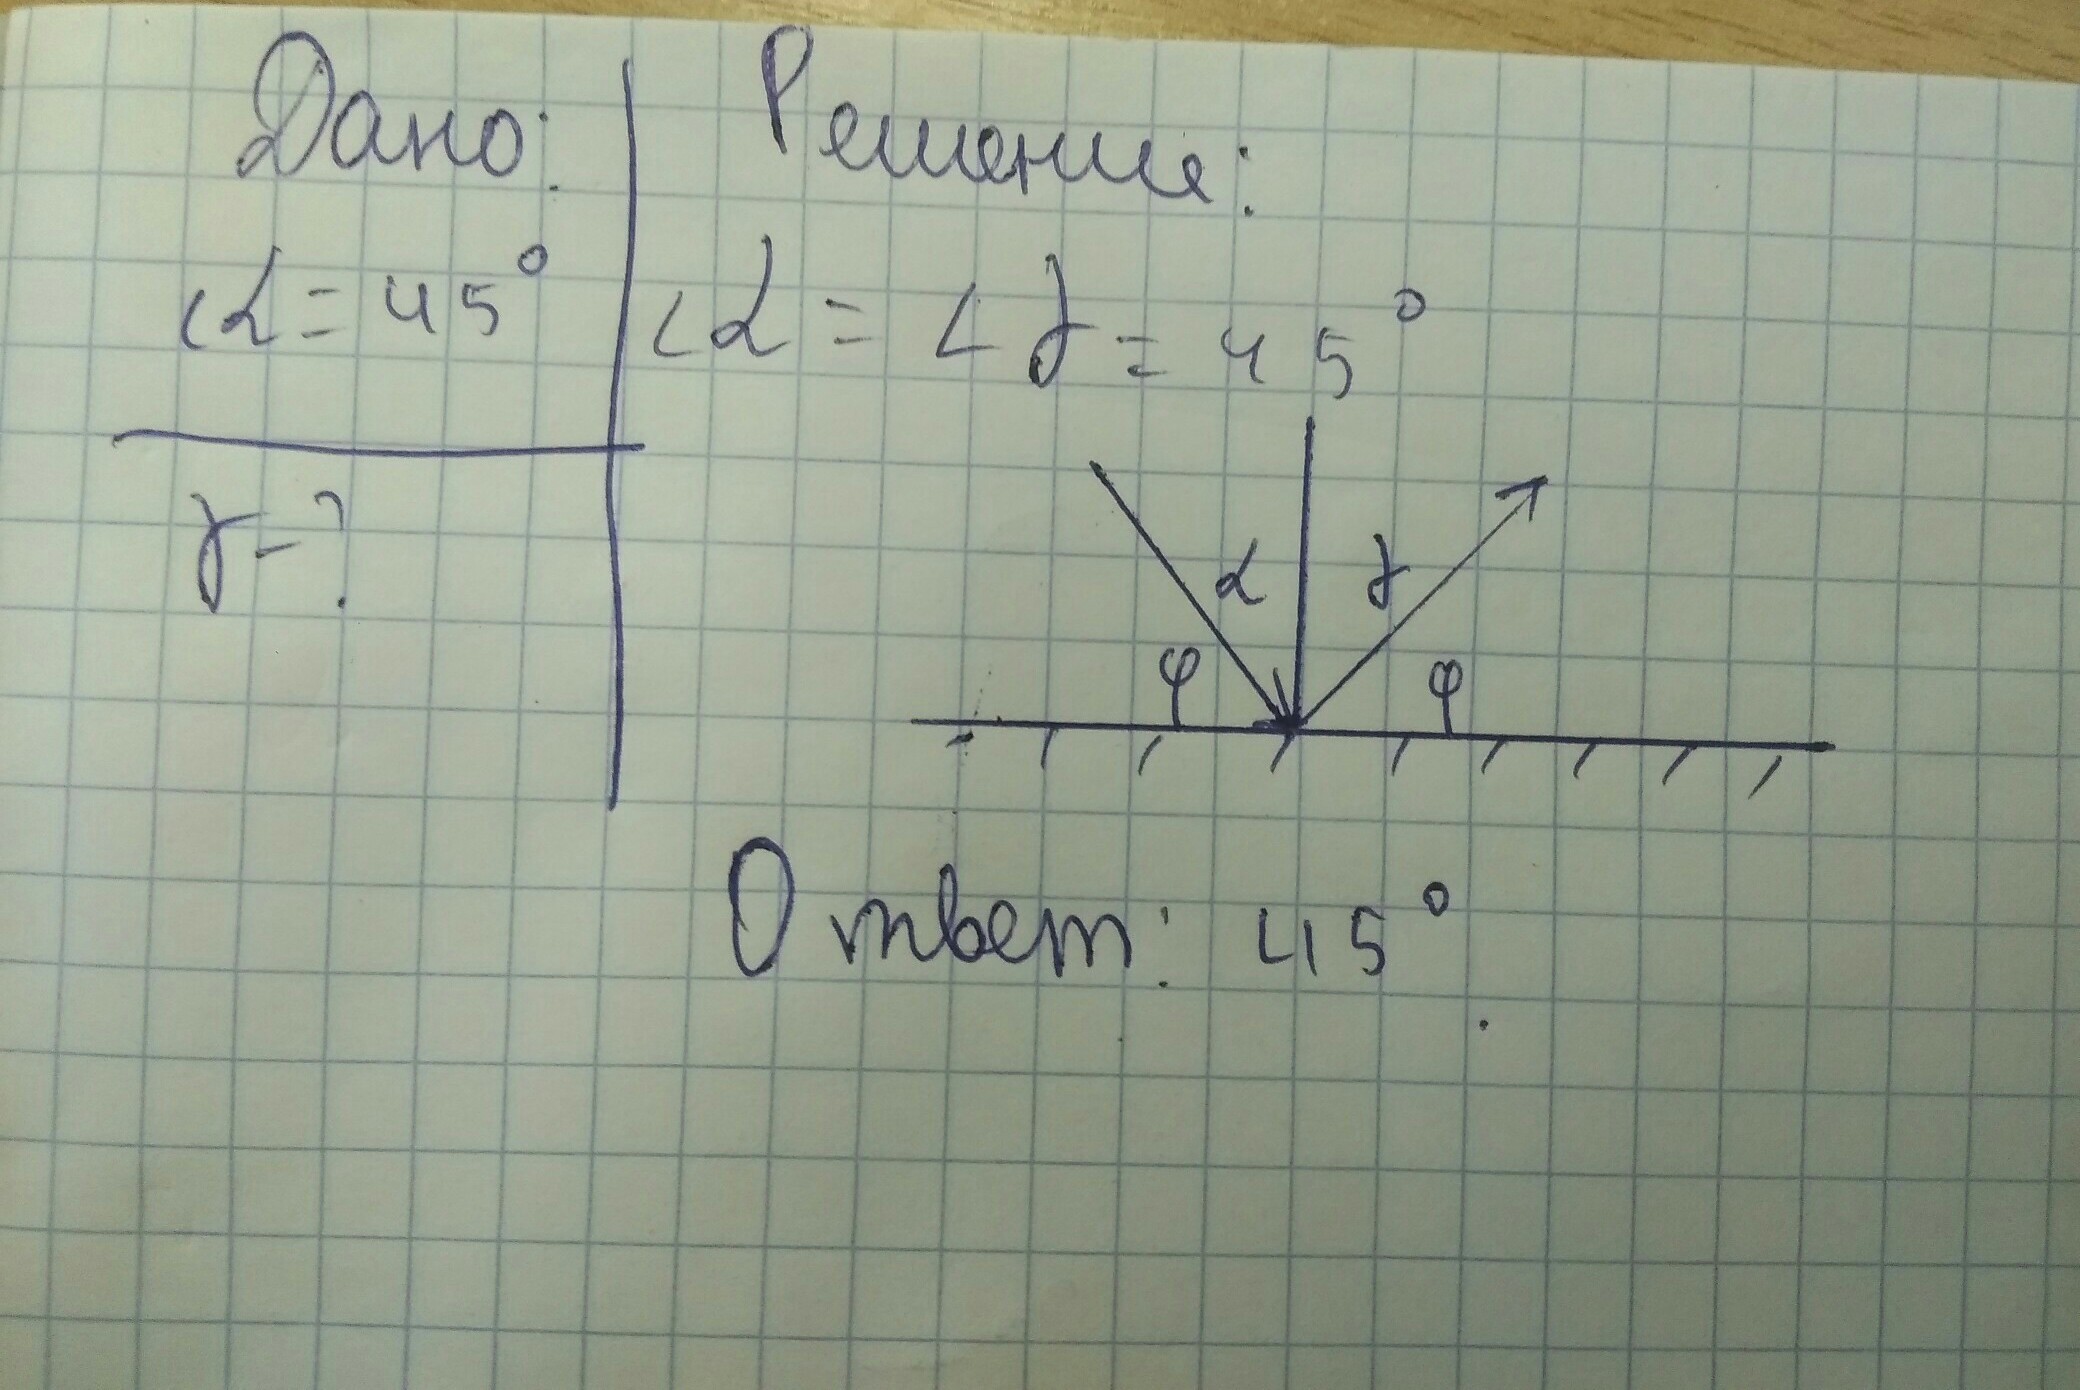 Дано:
∠α = 45°
γ - ?
Решение:
∠α = ∠γ = 45°
α γ
φ φ
Ответ: 45°